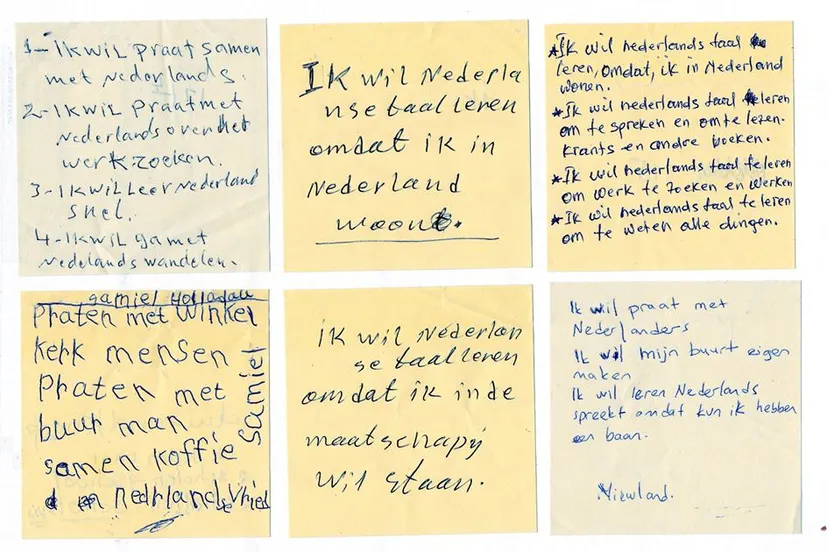 1- IK WiL praat samen
met Nederlands.
2- IK WiL praat met
Nederlands over het
werk zoeken.
3- IK WiL Leer Nederland
snel.
4- IK WiL ga met
Nedelands wandelen.
IK wil Nederla
nse taal leren
omdat ik in
Nederland
woont.
*Ik wil nederlands taal
leren, omdat, ik in Nederland
wonen.
*Ik wil nederlands taal leren
om te spreken en om te lezen.
krants en andre boeken.
*Ik wil nederlands taal te leren
om werk te zoeken en werken
*Ik wil nederlands taal te leren
om te weten alle dingen.
samiel
Praten met winkel
kerk mensen
Praten met
buur man
samen koffie
Nedrlandse Vried
samiel
ik wil Nederlan
se taal leren
omdat ik in de
maatschapij
wil staan.
Ik wil praat met
Nederlanders
Ik wil mijn buurt eigen
maken
Ik wil leren Nederlands
spreekt omdat kun ik hebben
een baan.
Niewland.